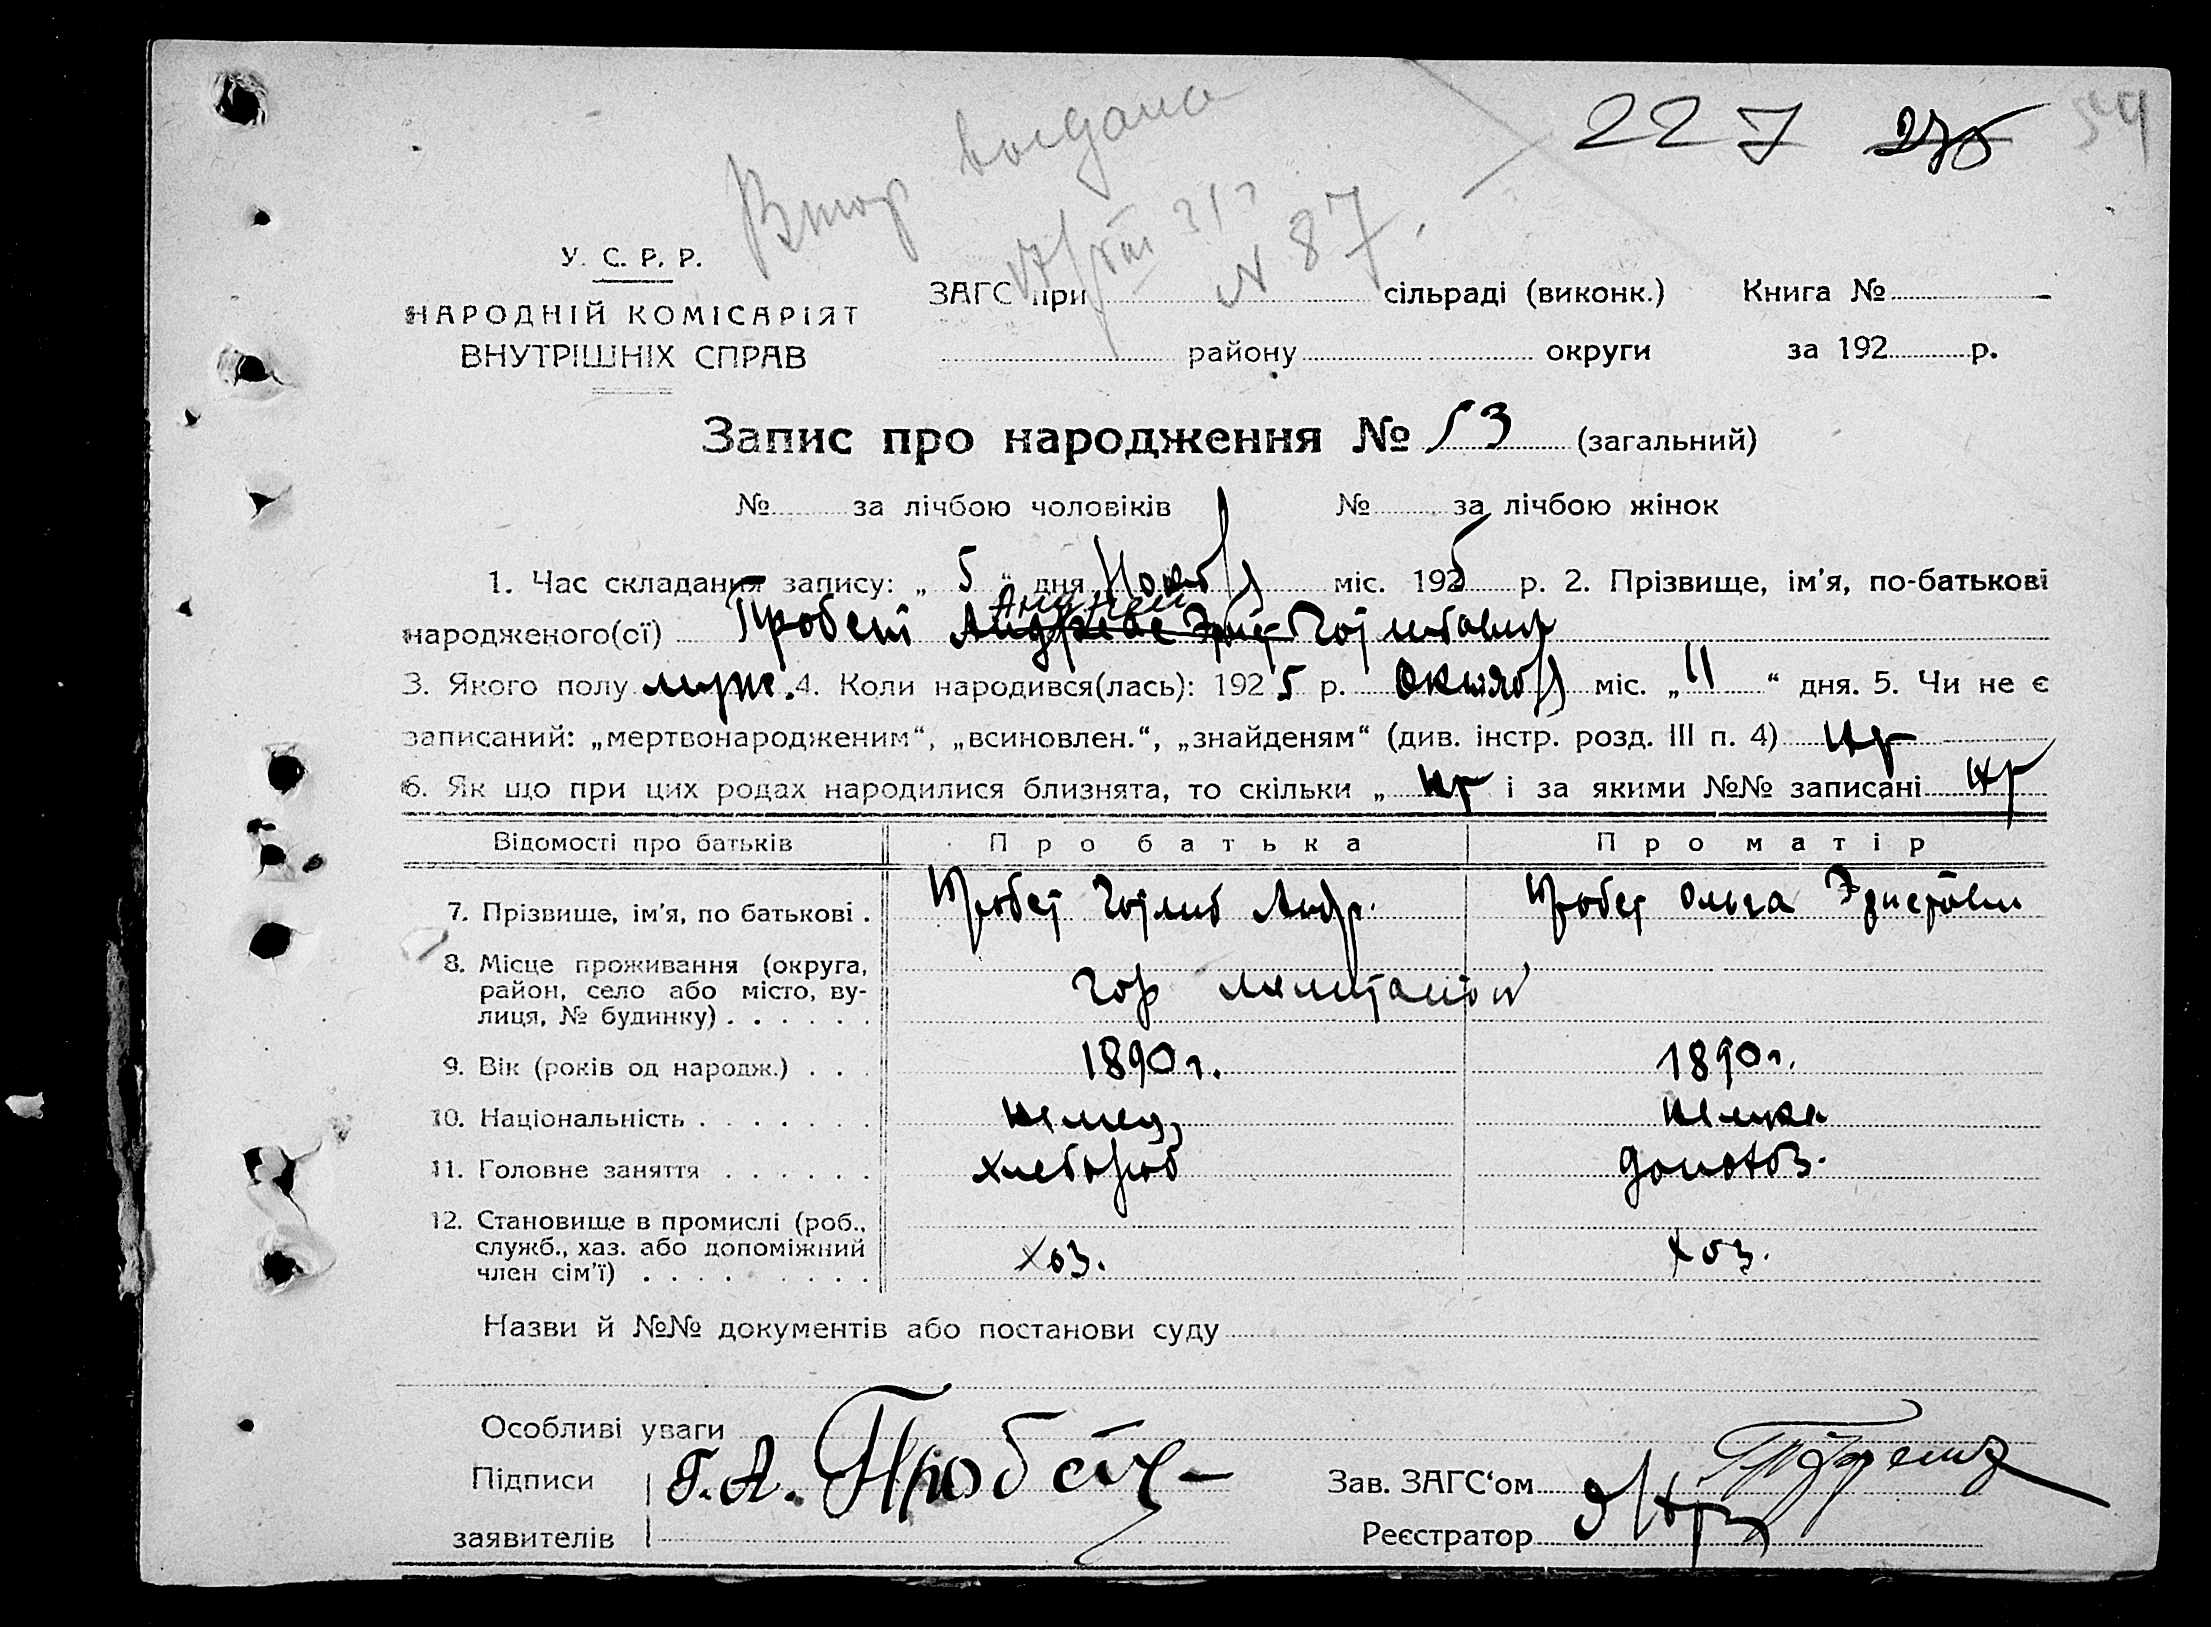 227 54
Втор выдано
N 87.
У. С. Р. Р.
НАРОДНІЙ КОМІСАРІЯТ
ВНУТРІШНІХ СПРАВ
ЗАГС при сільраді (виконк.) Книга №
району округи за 192 р.
Запис про народження № 53 (загальний)
№ за лічбою чоловіків № за лічбою жінок
1. Час складання запису: „ 5 “ дня Нояб міс. 1925 р. 2. Прізвище, ім'я, по-батькові
Андрей
народженого(ої) Пробст
3. Якого полу муж. 4. Коли народився(лась): 1925 р. Октяб міс. „ 11 “ дня. 5. Чи не є
записаний: „мертвонародженим“, „всиновлен.“, „знайденям“ (див. інстр. розд. III п. 4)
6. Як що при цих родах народилися близнята, то скільки „ і за якими №№ записані
Відомості про батьків Про батька Про матір
7. Прізвище, ім'я, по батькові . Пробст Готлиб Андр. Пробст Ольга
8. Місце проживання (округа,
район, село або місто, ву-
лиця, № будинку) . . . . . . гор
9. Вік (років од народж.) . . . 1890 г. 1890 г.
10. Національність . . . . . . . немец немка
11. Головне заняття . . . . . . хлебороб домохоз.
12. Становище в промислі (роб.,
служб., хаз. або допоміжний
член сім'ї) . . . . . . . . . хоз. хоз.
Назви й №№ документів або постанови суду
Особливі уваги
Підписи Г. А. Пробст Зав. ЗАГС'ом
заявителів Реєстратор